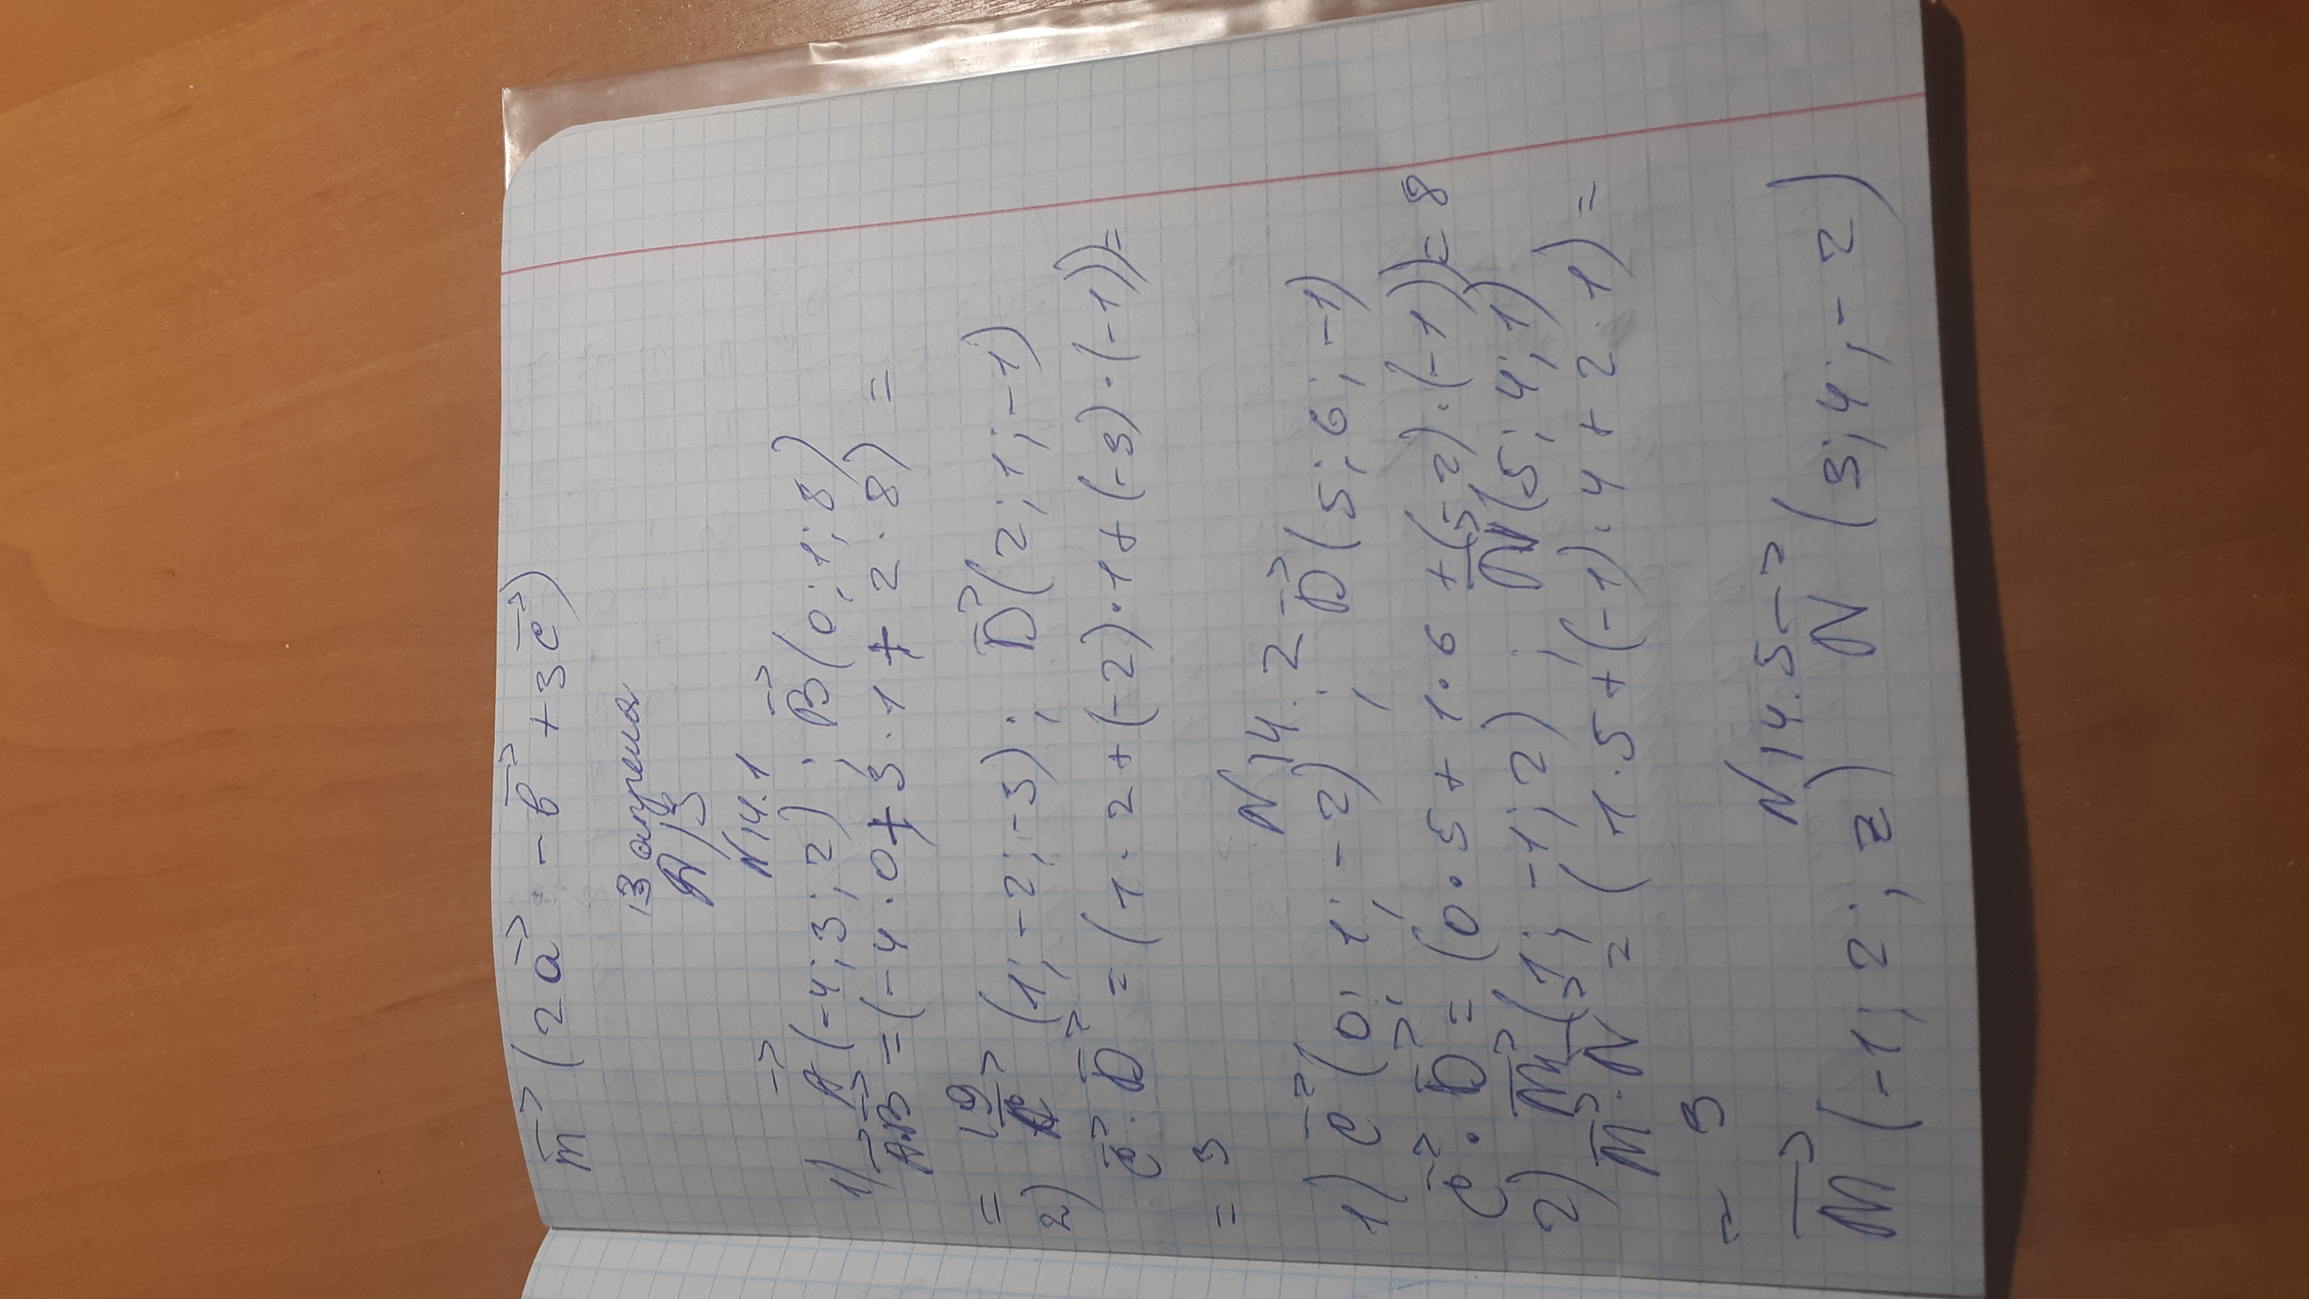 m⃗ (2a⃗ - b⃗ + 3c⃗)
13 апреля
Д/З
N 14.1
1) A⃗ (-4; 3; 2); B⃗ (0; 1; 8)
A⃗·B⃗ = (-4·0+3·1+2·8) =
= 19
2) C⃗ (1; -2; -3); D⃗ (2; 1; -1)
C⃗·D⃗ = (1·2+(-2)·1+(-3)·(-1)) =
= 3
N 14.2
1) C⃗ (0; 1; -2); D⃗ (5; 6; -1)
C⃗·D⃗ = (0·5+1·6+(-2)·(-1)) = 8
2) M⃗ (1; -1; 2); N⃗ (5; 4; 1)
M⃗·N⃗ = (1·5+(-1)·4+2·1) =
= 3
N 14.5
M⃗ (-1; 2; z) N⃗ (3; 4; -2)